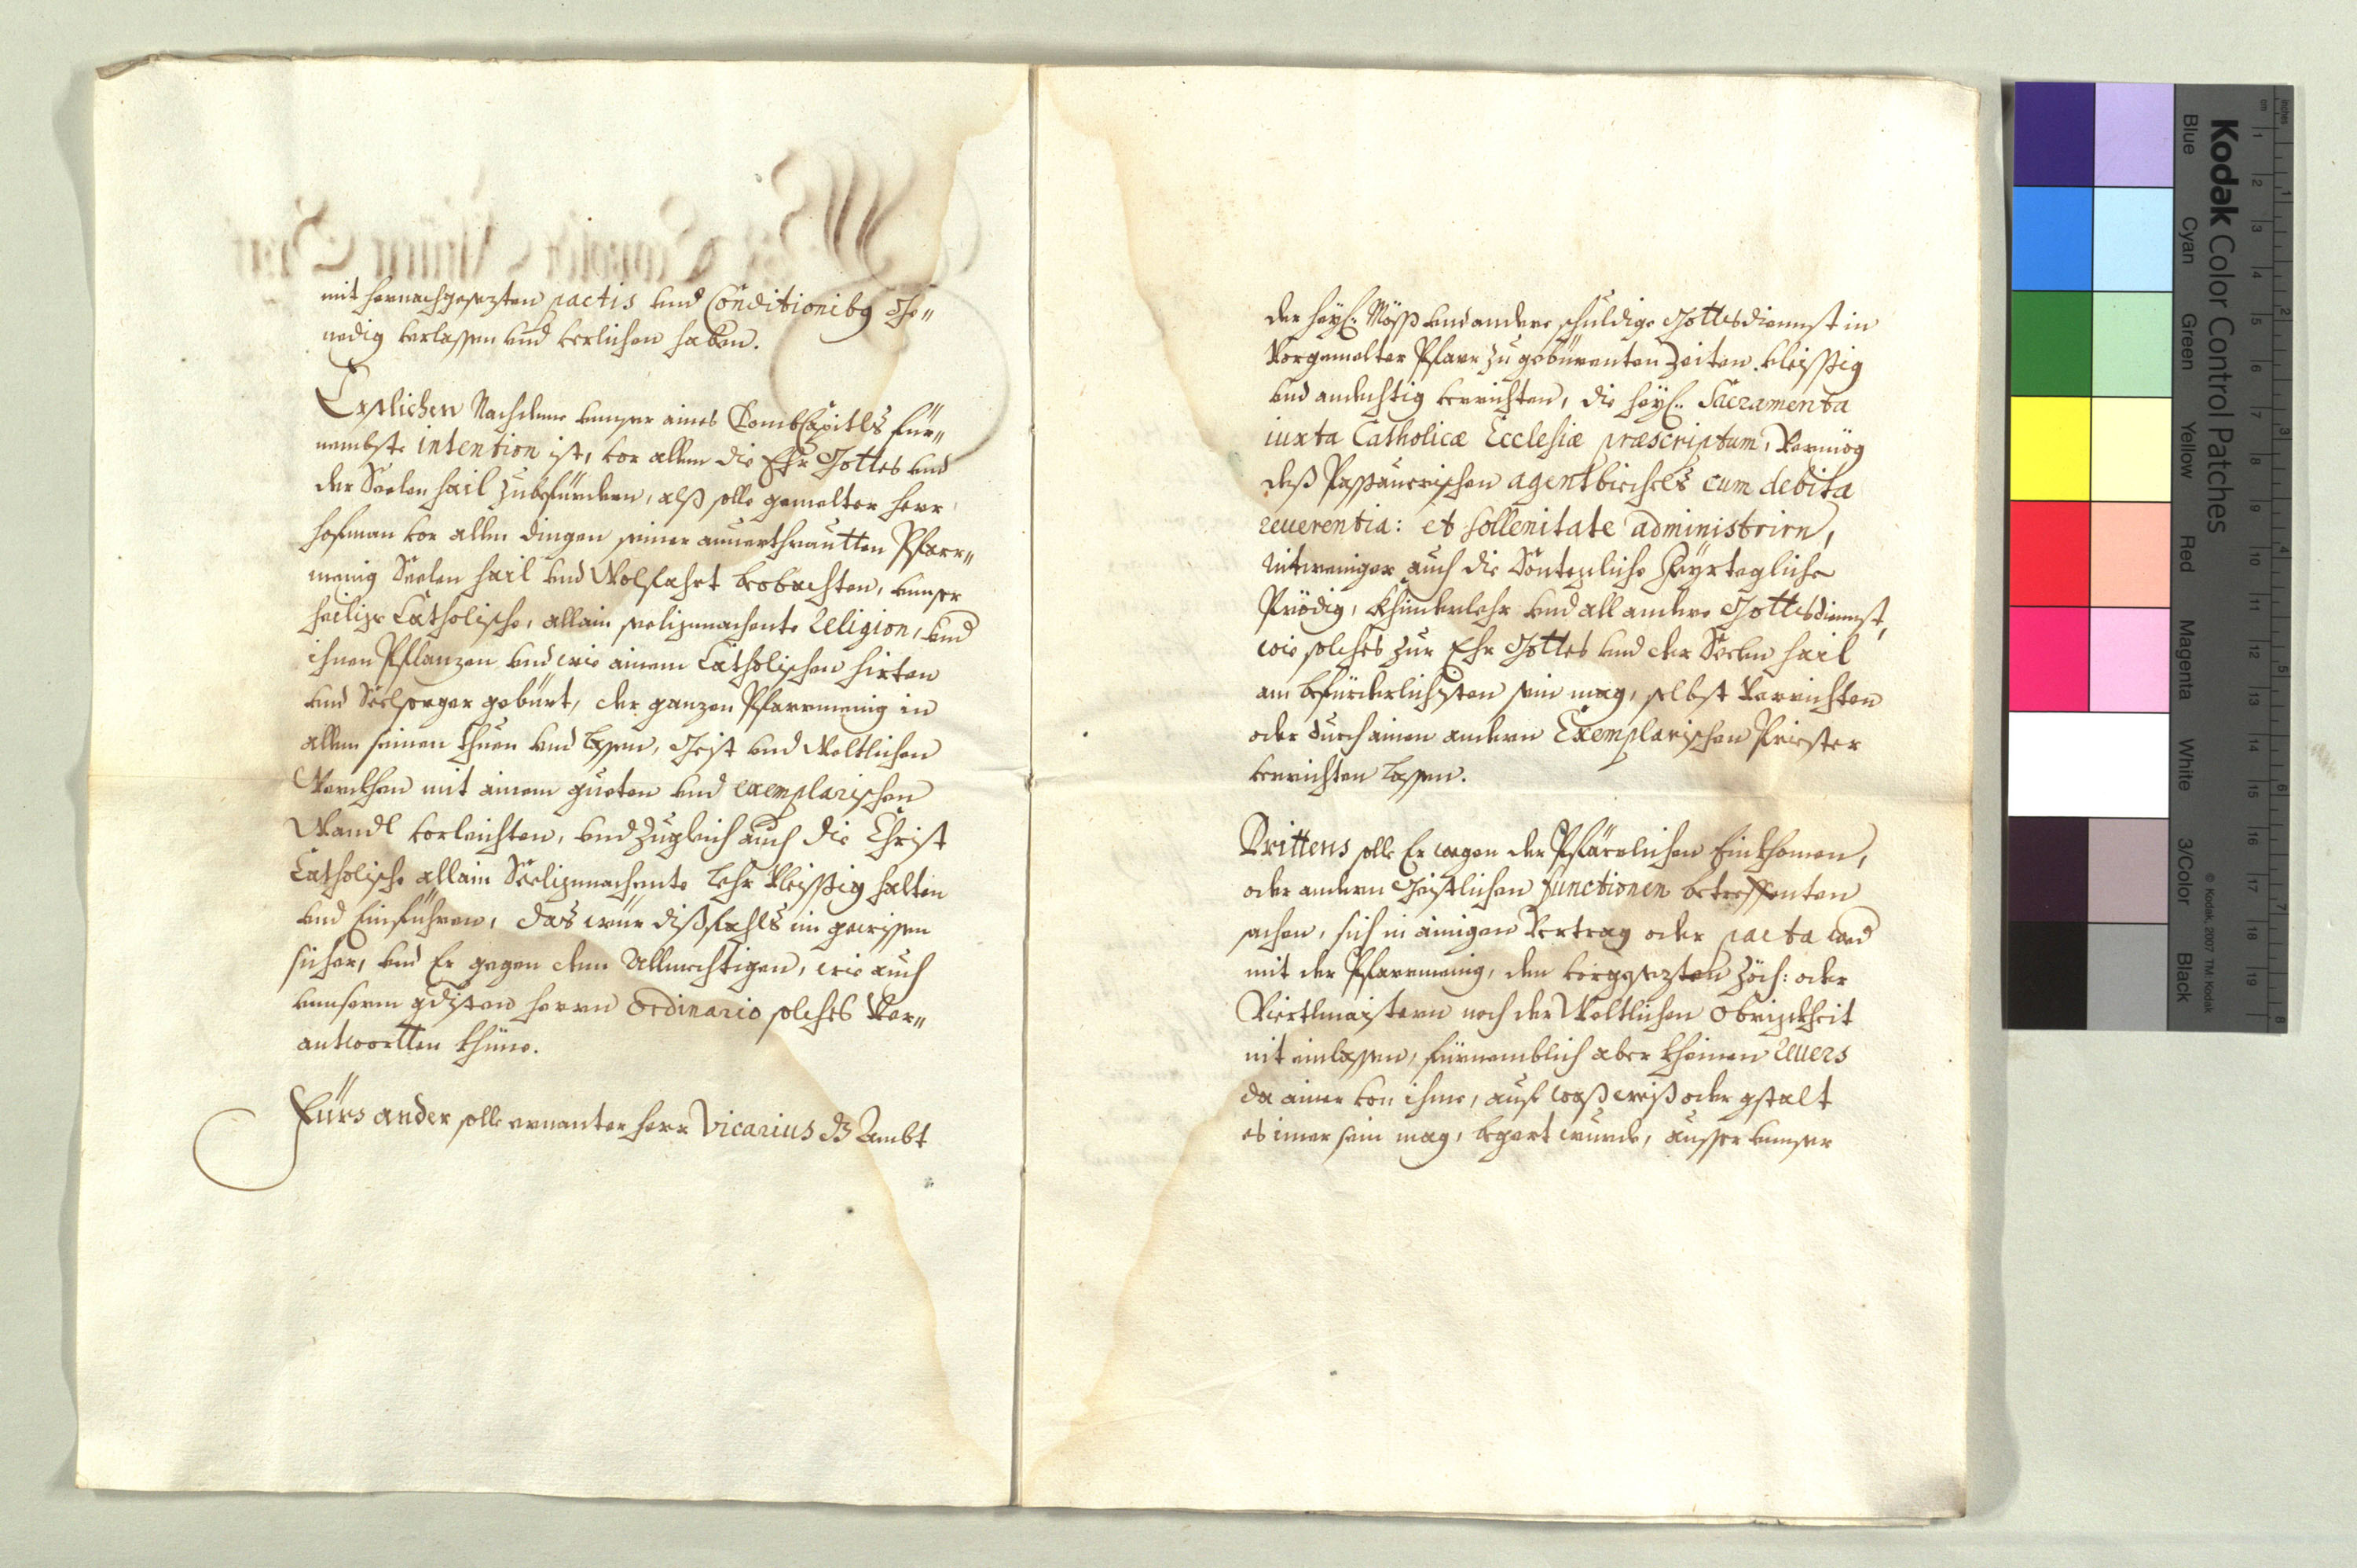 mit hernachgesezten pactis vnd Conditionibq Ge„
nedig verlassen vnd verlichen haben.
Erstlichen Nachdeme vnnser aines DombCapitls für„
nembste intention ist, vor allem die Ehr Gottes vnd
der Seelen hail zubefürdern, alß solle gemelter herr
hofman vor allen dingen seiner anuerthrautten Pfarr„
menig Seelen hail vnd Wolfahrt beobachten, vnnser
heilige Catholische, allain seeligmachente Religion, vnd
ihnen Pflanzen vnd wie ainem Catholischen hirten
vnd Seelsorger gebürt, der ganzen Pfarrmenig in
allem seinen thuen vnd lassen, Geist vnd Weltlichen
Werckhen mit ainem gueten vnd exemplarischen
Wandl vorleichten, vnd zugleich auch die Christ
Catholische allain Seeligmachente Lehr vleissig halten
vnd Einführen, das wür dißfahls im gewissen
sicher, vnd Er gegen dem Allmechtigen, wie auch
vnnserm gdisten herrn Ordinario solches Ver„
antwortten khüne.
Fürs ander solle ernanter herr Vicarius dz Ambt
der heyl: Mösß vnd andere schuldige Gottesdiennst in
Vorgemelter Pfarr zu gebürenten Zeiten vleissig
vnd andechtig verrichten, die heyl: Sacramenta
iuxta Catholicæ Ecclesiæ præscriptum, Vermög
deß Passauerischen agentbiechels cum debita
reuerentia: et sollenitate administrirn,
nitweniger auch die Sontegliche Feyrtegliche
Prödig, Khinderlehr vnd all andere Gottesdiennst,
wie solches zur Ehr Gottes vnd der Seelen hail
am befürderlichsten sein mag, selbst Verrichten
oder durch ainen andern Exemplarischen Priester
verrichten lassen.
Drittens solle Er wegen der Pfärrlichen Einkhomen,
oder andern Geistlichen functionen betreffenten
sachen, sich in ainigen Vertrag oder pacta wed
mit der Pfarrmenig, den vorgesezten Zöch: oder
Viertlmaistern noch der Weltlichen Obrigckheit
nit einlassen, fürnemblich aber kheinen Reuers
da ainer von ihme, auf waß weiß oder gstalt
es imer sein mag, begert wurde, ausser vnnser
Kodak Color Control Patches
Blue
Cyan
Green
Yellow
Red
Magenta
White
3/Color
Black
© Kodak, 2007 TM: Kodak
inches
cm
1
2
3
4
5
6
7
8
9
10
11
12
13
14
15
16
17
18
19
1
2
3
4
5
6
7
8